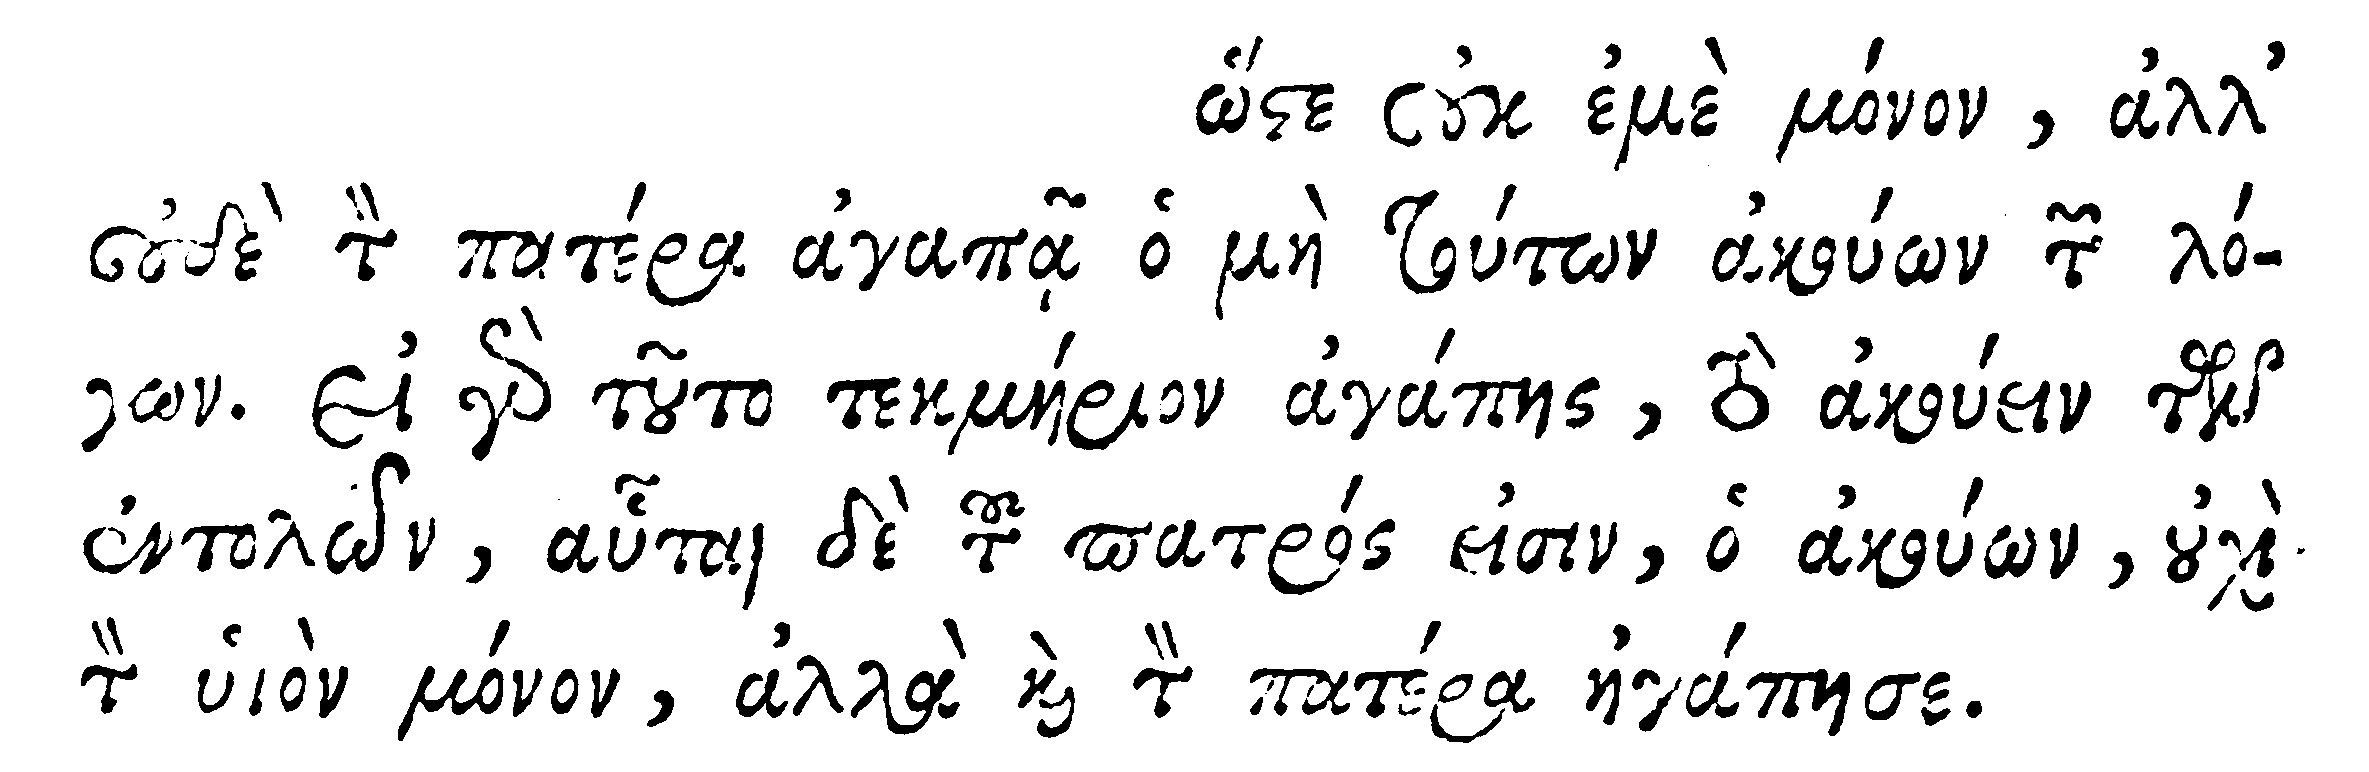 ὥστε οὐκ ἐμὲ μόνον, ἀλλ’
οὐδὲ τὸν πατέρα ἀγαπᾷ ὁ μὴ τούτων ἀκούων τῶν λό-
γων. εἰ γὰρ τοῦτο τεκμήριον ἀγάπης, τὸ ἀκούειν τῶν
ἐντολῶν, αὗται δὲ τοῦ πατρός εἰσιν, ὁ ἀκούων, οὐχὶ
τὸν υἱὸν μόνον, ἀλλὰ καὶ τὸν πατέρα ἠγάπησε.